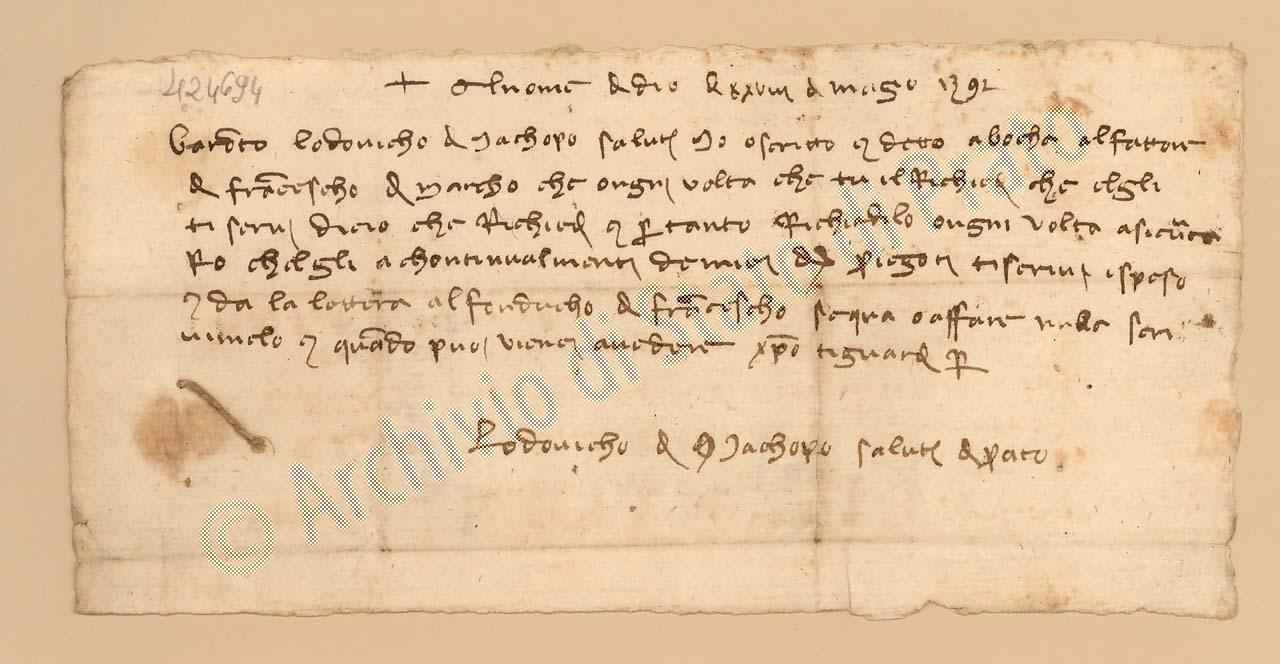 424694
+ Al nome di dio di xxviii di magio 1392
Bardetto Lodovicho di Jachopo saluti Io o scritto e detto a bocha al fattore
di Francescho di Marcho che ongni volta che tu il Richiedi che elgli
ti servi di cio che Richiedi e per tanto Richiedilo ongni volta
Ro chelgli a chontinualmenti denier di priegoti ti scrivi ispeso
e da la lettera al fonducho di Francescho se qua o affare nulla scri
vimelo e quando puoi vieni a vedere xpo ti guardi per
Lodovicho di Jachopo saluti di prato
© Archivio di Stato di Prato